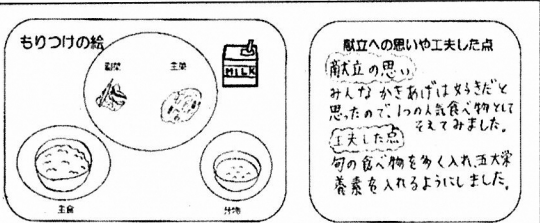 もりつけの絵
副菜
主菜
MILK
主食
汁物
献立への思いや工夫した点
献立の思い
みんなかきあげは好きだと
思ったので、1つの人気食べ物として
そえてみました。
工夫した点
旬の食べ物を多く入れ、五大栄
養素を入れるようにしました。